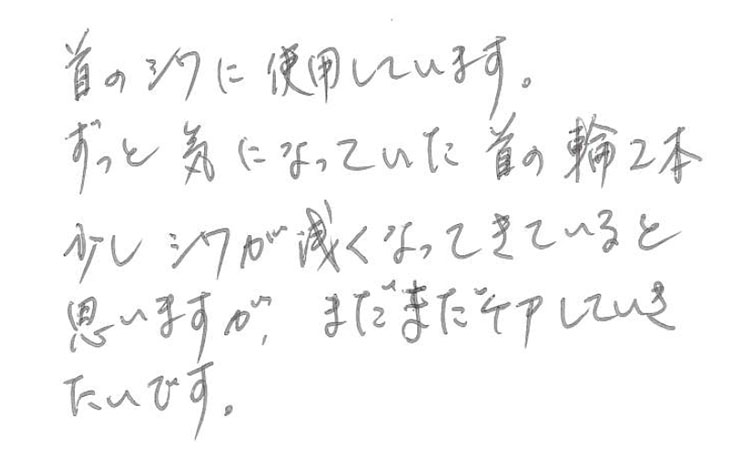 首のシワに使用しています。
ずっと気になっていた首の輪2本
少しシワが浅くなってきていると
思いますが、まだまだケアしていき
たいです。